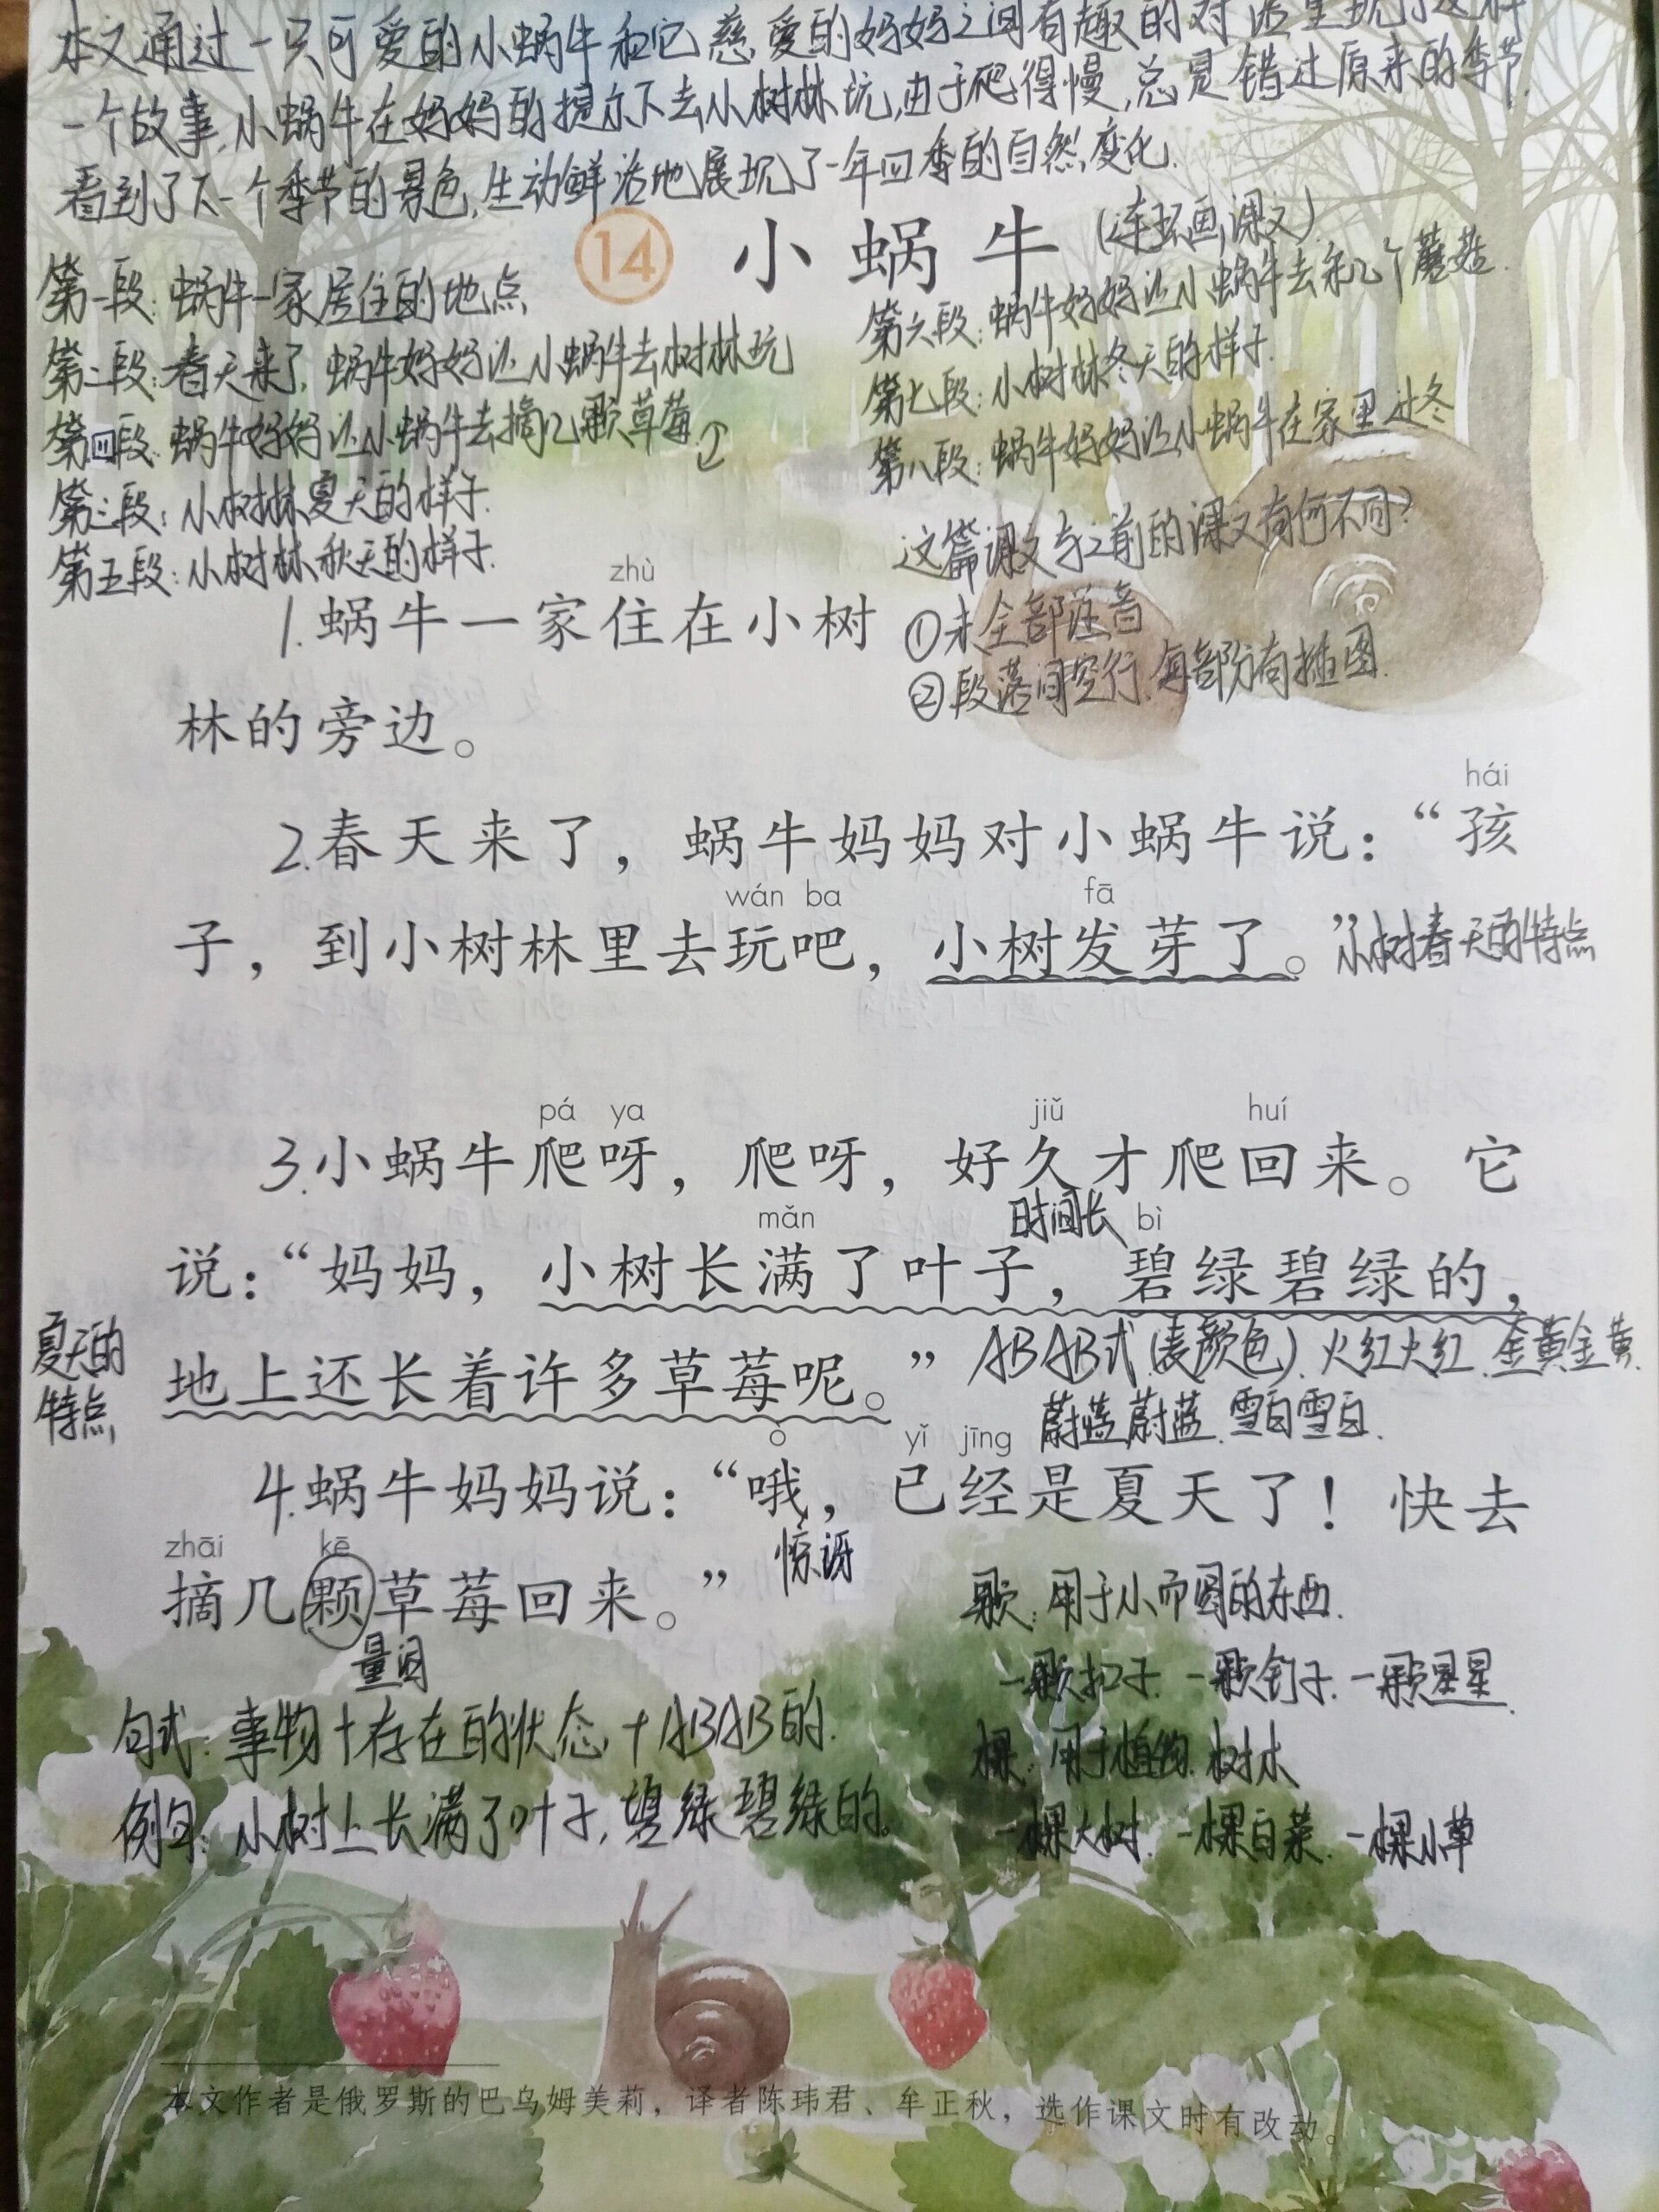 本文通过一只可爱的小蜗牛和它慈爱的妈妈之间有趣的对话呈现了这样
一个故事,小蜗牛在妈妈的提示下去小树林玩,由于爬得慢,总是错过原来的季节,
看到了下一个季节的景色,生动鲜活地展现了一年四季的自然变化.
14 小蜗牛 (连环画课文)
第一段:蜗牛一家居住的地点
第二段:春天来了,蜗牛妈妈让小蜗牛去树林玩
第四段:蜗牛妈妈让小蜗牛去摘几颗草莓
第三段:小树林夏天的样子.
第五段:小树林秋天的样子.
第六段:蜗牛妈妈让小蜗牛去采几个蘑菇.
第七段:小树林冬天的样子.
第八段:蜗牛妈妈让小蜗牛在家里过冬
这篇课文与之前的课文有何不同?
①未全部注音
②段落间空行,每部分有插图.
zhù
1.蜗牛一家住在小树
林的旁边。
hái
2.春天来了,蜗牛妈妈对小蜗牛说:“孩
wán ba fā
子,到小树林里去玩吧,小树发芽了。”小树春天的特点
pá ya jiǔ huí
3.小蜗牛爬呀,爬呀,好久才爬回来。它
时间长
mǎn bì
说:“妈妈,小树长满了叶子,碧绿碧绿的,
夏天的
特点
地上还长着许多草莓呢。” ABAB式(表颜色).火红火红.金黄金黄.
蔚蓝蔚蓝.雪白雪白.
ò yǐ jīng
4.蜗牛妈妈说:“哦,已经是夏天了!快去
惊讶
zhāi kē
摘几颗草莓回来。”
量词
颗:用于小而圆的东西.
一颗扣子.一颗钉子.一颗星星.
棵:用于植物.树木
一棵大树.一棵白菜.一棵小草
句式:事物+存在的状态+ABAB的.
例句:小树上长满了叶子,碧绿碧绿的.
本文作者是俄罗斯的巴乌姆美莉,译者陈玮君、牟正秋,选作课文时有改动。